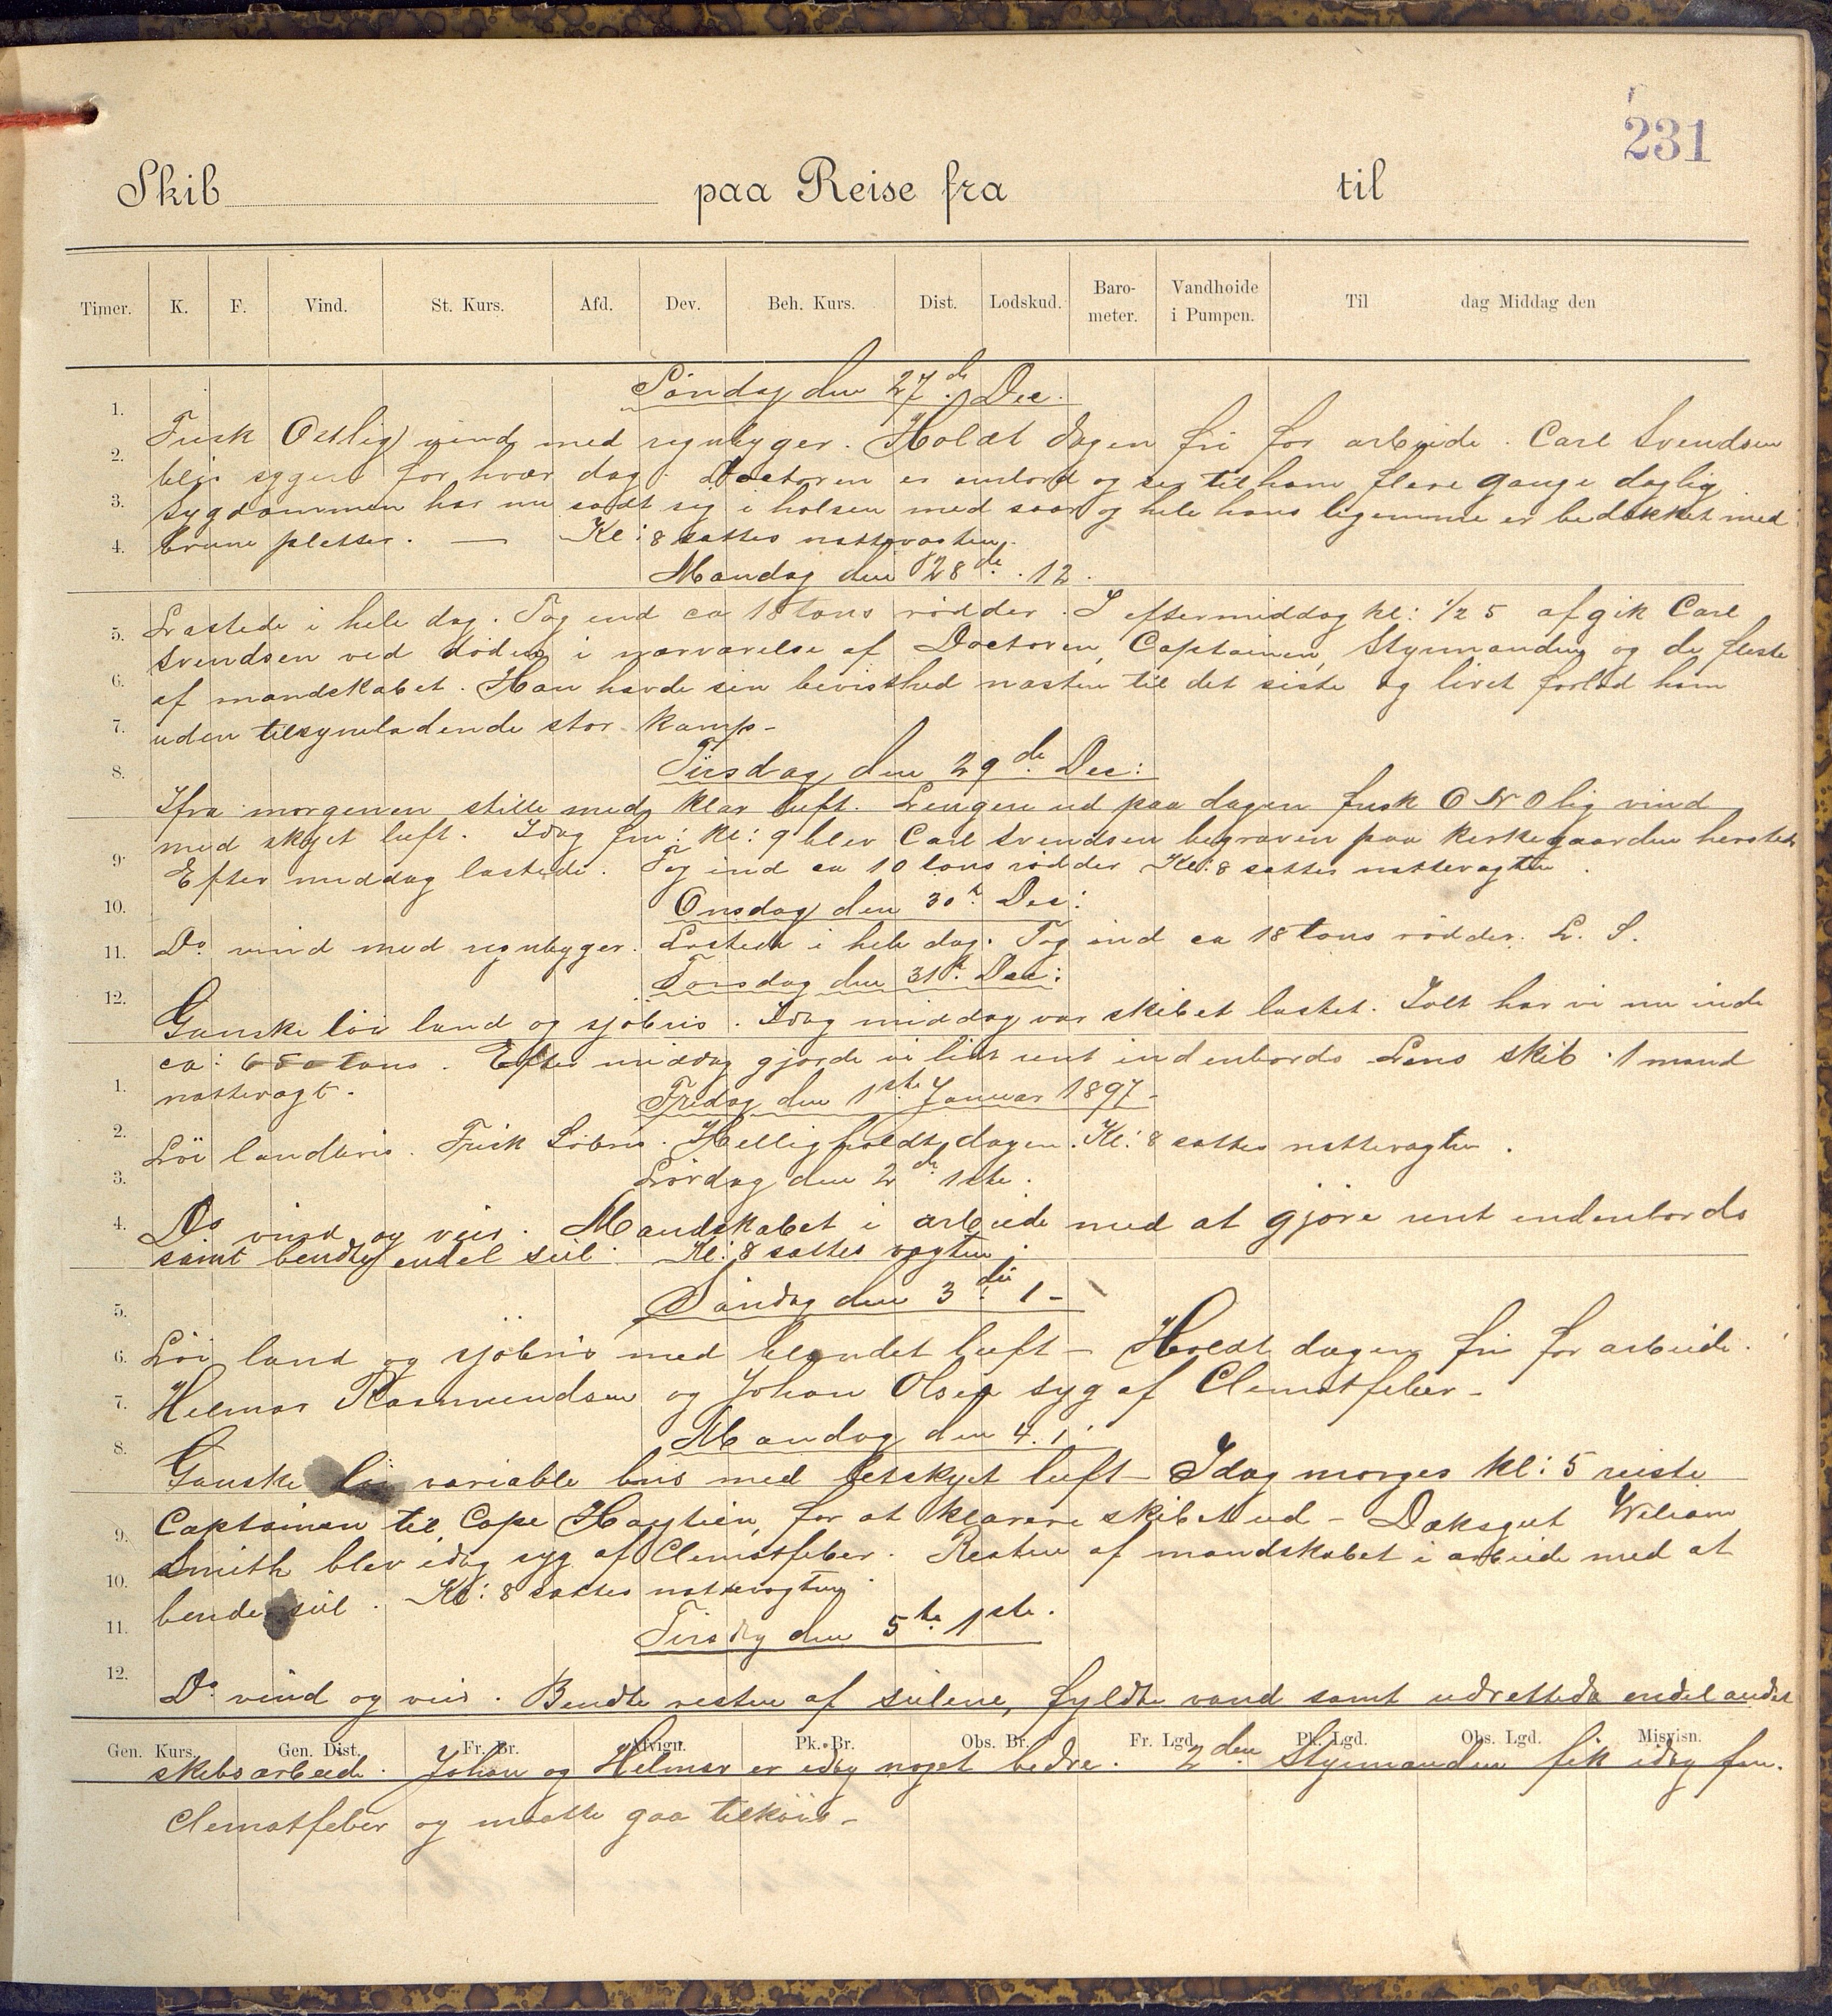 231
Skib paa Reise fra til
Timer. K. F. Vind. St. Kurs. Afd. Dev. Beh. Kurs. Dist. Lodskud. Baro-meter. Vandhoide i Pumpen. Til dag Middag den
Søndag den 27de Dec.
1.
Frisk Ostlig vind med regnbyger. Holdt dagen fri for arbeide. Carl Svendsen
2.
blir sygere for hver dag. Doctoren er ombord og ser til ham flere gange daglig
3.
Sygdommen har nu sadt sig i halsen med saar og hele hans ligemme er bedækket med
4.
brune pletter. — Kl: 8 sattes nattevagten.
Mandag den 28de 12.
5.
Lastede i hele dag. Tog ind ca 18 tons rødder. I eftermiddag kl: 1/2 5 afgik Carl
Svendsen ved døden i nærværelse af Doctoren, Captainen, Styrmanden og de fleste
6.
af mandskabet. Han havde sin bevisthed næsten til det siste og livet forlod ham
7.
uden tilsyneladende stor kamp -
8.
Tirsdag den 29de Dec:
Ifra morgenen stille med klar luft. Lengere ud paa dagen frisk ONOlig vind
med skyet luft. Idag fm: kl: 9 blev Carl Svendsen begraven paa kirkegaarden hersteds
9.
Efter middag lastede. Tog ind ca 10 tons rødder Kl: 8 sattes nattevagten.
10.
Onsdag den 30te Dec:
11.
Do vind med regnbyger. Lastede i hele dag. Tog ind ca 18 tons rødder. L. S.
Torsdag den 31te Dec:
12.
Ganske løi land og sjøbris. Idag middag var skibet lastet. Ialt har vi nu inde
ca: tons. Efter middag gjorde vi lidt rent indenbords Lens skib. 1 mand
1.
nattevagt.
Fredag den 1ste Januar 1897 -
2.
Løi landbris. Frisk Søbris. Helligholdt dagen. Kl: 8 sattes nattevagten.
3.
Lørdag den 2de 1ste.
4.
Do vind og veir. Mandskabet i arbeide med at gjøre rent indenbords
samt bendte endel seil. Kl: 8 sattes vagten.
Søndag den 3die 1 -
5.
6.
Løi land og sjøbris med blandet luft - Holdt dagen fri for arbeide.
7.
Helmar Rasmundsen og Johan Olsen syg af Clematfeber -
8.
Mandag den 4. 1
Ganske løi variable bris med letskyet luft - Idag morges kl: 5 reiste
Captainen til Cape Haytien, for at klarere skibet ud - Dæksgut Wiliam
9.
Smith blev idag syg af Clematfeber. Resten af mandskabet i arbeide med at
10.
bende seil. Kl: 8 sattes nattevagten.
11.
Tirsdag den 5te 1ste.
12.
Do vind og veir. Bendte resten af seilene, fyldte vand samt udrettede endel andet
Gen. Kurs. Gen. Dist. Fr. Br. Afvign. Pk. Br. Obs. Br. Fr. Lgd. Pk. Lgd. Obs. Lgd. Misvisn.
skibsarbeide. Johan og Helmar er idag noget bedre. 2den Styrmanden fik idag fm.
Clematfeber og maatte gaa tilkøis -